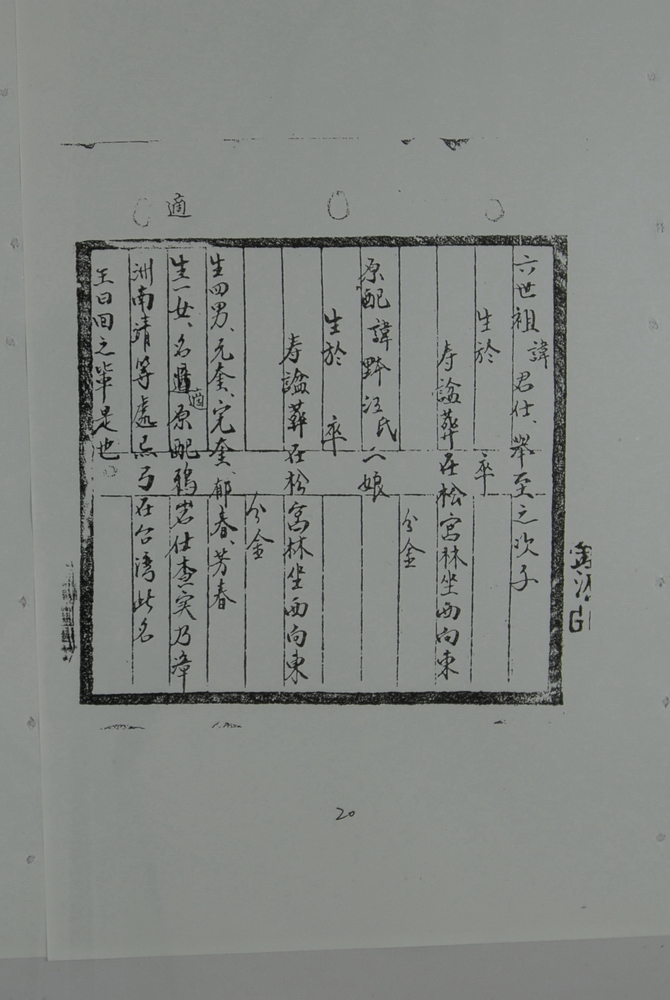 適
六世祖諱君仕、舉至之次子
生於 卒
寿諡葬在松宮林坐西向東
分金
原配諱野江氏八娘
生於 卒
寿諡葬在松宮林坐西向東
分金
生四男、元奎、完奎、郁春、芳春
生一女、名適原配鴉岩仕查実乃漳
洲南靖等處、与在台湾此名
王日回之輩是也
20